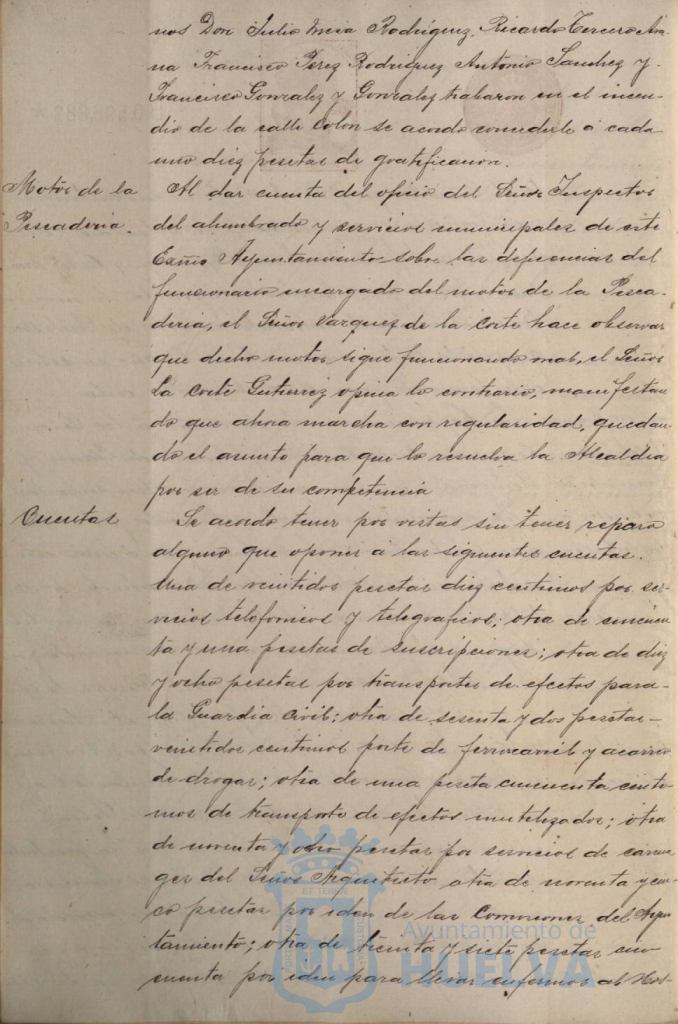 nos Don Julio Mesa Rodriguez, Ricardo Tercero
na Francisco Perez Rodriguez Antonio Sanchez y
Francisco Gonzalez y Gonzalez trabaron en el incen-
dio de la calle Colon se acordo concederle á cada
uno diez pesetas de gratificacion.
Motor de la
Pescaderia.
Al dar cuenta del oficio del Señor Inspector
del alumbrado y servicios municipales de este
Excmo Ayuntamiento sobre las deficencias del
funcionario encargado del motor de la Pesca-
deria, el Señor Vazquez de la Corte hace observar
que dicho motor sigue funcionando mal, el Señor
La Corte Gutierrez opina lo contrario, manifestan
do que ahora marcha con regularidad, quedan-
do el asunto para que lo resuelva la Alcaldia
por ser de su competencia
Cuentas
Se acordo tener por vistas sin tener reparo
alguno que oponer á las siguientes cuentas.
Una de veintidos pesetas diez centimos por ser-
vicios telefonicos y telegraficos; otra de cincuen
ta y una pesetas de suscripciones; otra de diez
y ocho pesetas por transportes de efectos para
la Guardia Civil; otra de sesenta y dos pesetas
veintidos centimos porte de ferrocarril y acarreo
de drogas; otra de una peseta cincuenta centi
mos de transporte de efectos inutilizados; otra
de noventa y ocho pesetas por servicios de carrua
ges del Señor Arquitecto otra de noventa y cin-
co pesetas por iden de las Comisiones del Ayun
tamiento; otra de treinta y siete pesetas cin-
cuenta por iden para llevar enfermos al Hos-
Ayuntamiento de
HUELVA